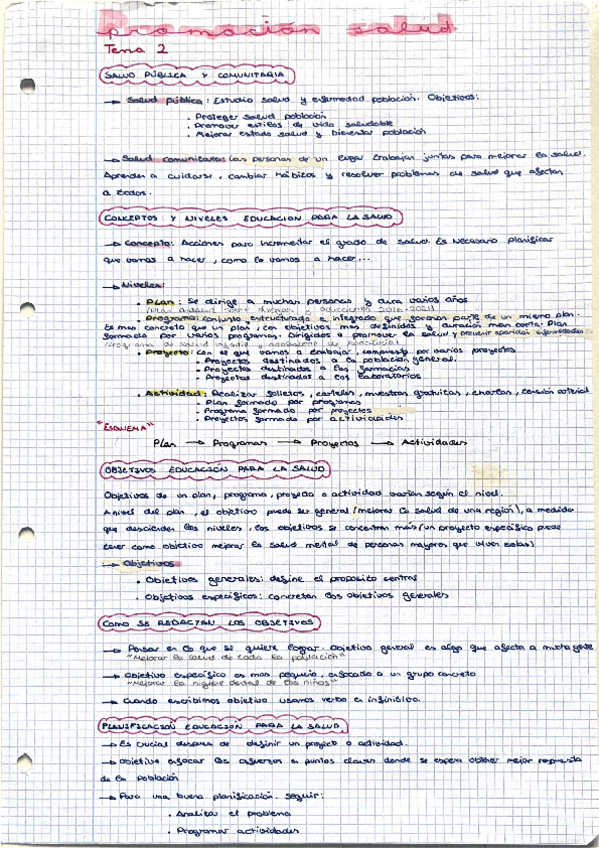 promoción salud
Tema 2
SALUD PÚBLICA Y COMUNITARIA
→ Salud pública: Estudio salud y enfermedad población. Objetivos:
· Proteger salud población
· Promover estilos de vida saludable
· Mejorar estado salud y bienestar población
→ Salud comunitaria: Las personas de un lugar trabajan juntas para mejorar la salud.
Aprenden a cuidarse, cambiar hábitos y resolver problemas de salud que afectan
a todos.
CONCEPTOS Y NIVELES EDUCACION PARA LA SALUD
→ Concepto: Acciones para incrementar el grado de salud. Es necesario planificar
que vamos a hacer, como lo vamos a hacer...
→ Niveles:
· Plan: Se dirige a muchas personas y dura varios años
· Programa: conjunto estructurado e integrado que forman parte de un mismo plan.
Es mas concreto que un plan, con objetivos mas definidos y duración mas corta. Plan
formado por varios programas. Dirigidos a promover la salud y prevenir enfermedades
· Proyecto: Con el que vamos a trabajar, compuesto por varios proyectos
· Proyectos destinados a la población general.
· Proyectos destinados a las farmacias
· Proyectos destinados a los laboratorios
· Actividad: Realizar folletos, carteles, muestras gratuitas, charlas, tensión arterial
· Plan formado por programas
· Programa formado por proyectos
· Proyectos formado por actividades
"ESQUEMA"
Plan → Programas → Proyectos → Actividades
OBJETIVOS EDUCACIÓN PARA LA SALUD
Objetivos de un plan, programa, proyecto o actividad varían según el nivel.
A nivel del plan, el objetivo puede ser general (mejorar la salud de una región), a medida
que descienden los niveles, los objetivos se concentran más (un proyecto específico puede
tener como objetivo mejorar la salud mental de personas mayores que viven solas)
→ Objetivos
· Objetivos generales: define el propósito central
· Objetivos específicos: concretan los objetivos generales
COMO SE REDACTAN LOS OBJETIVOS
→ Pensar en lo que se quiere lograr. Objetivo general es algo que afecta a mucha gente
"Mejorar la salud de toda la población"
→ Objetivo específico es mas pequeño, enfocado a un grupo concreto
"Mejorar la higiene dental de los niños"
→ Cuando escribimos objetivo usamos verbo en infinitivo.
PLANIFICACIÓN EDUCACION PARA LA SALUD
→ Es crucial despues de definir un proyecto o actividad.
→ Objetivo enfocar los esfuerzos en puntos claves donde se espera obtener mejor respuesta
de la población
→ Para una buena planificación seguir:
· Analizar el problema
· Programar actividades